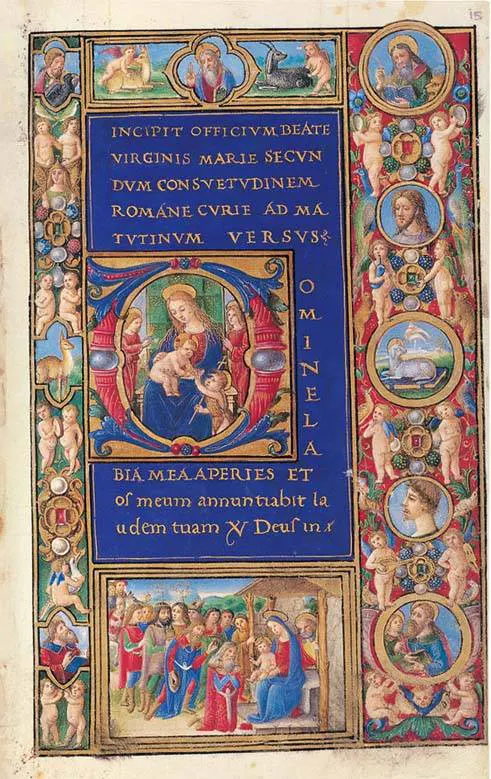 15
INCIPIT OFFICIVM BEATE
VIRGINIS MARIE SECVN
DVM CONSVETVDINEM
ROMANE CVRIE AD MA
TVTINVM VERSVS
DOMINE LA
BIA MEA APERIES ET
os meum annuntiabit la
udem tuam ℣ Deus in a